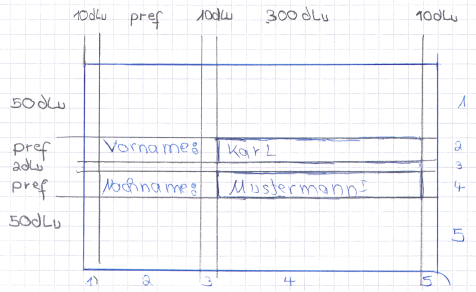 10dLu pref 10dLu 300dLu 10dLu
50dLu 1
pref Vorname: Karl 2
2dLu 3
pref Nachname: Mustermann I 4
50dLu 5
1) 2 3 4 5